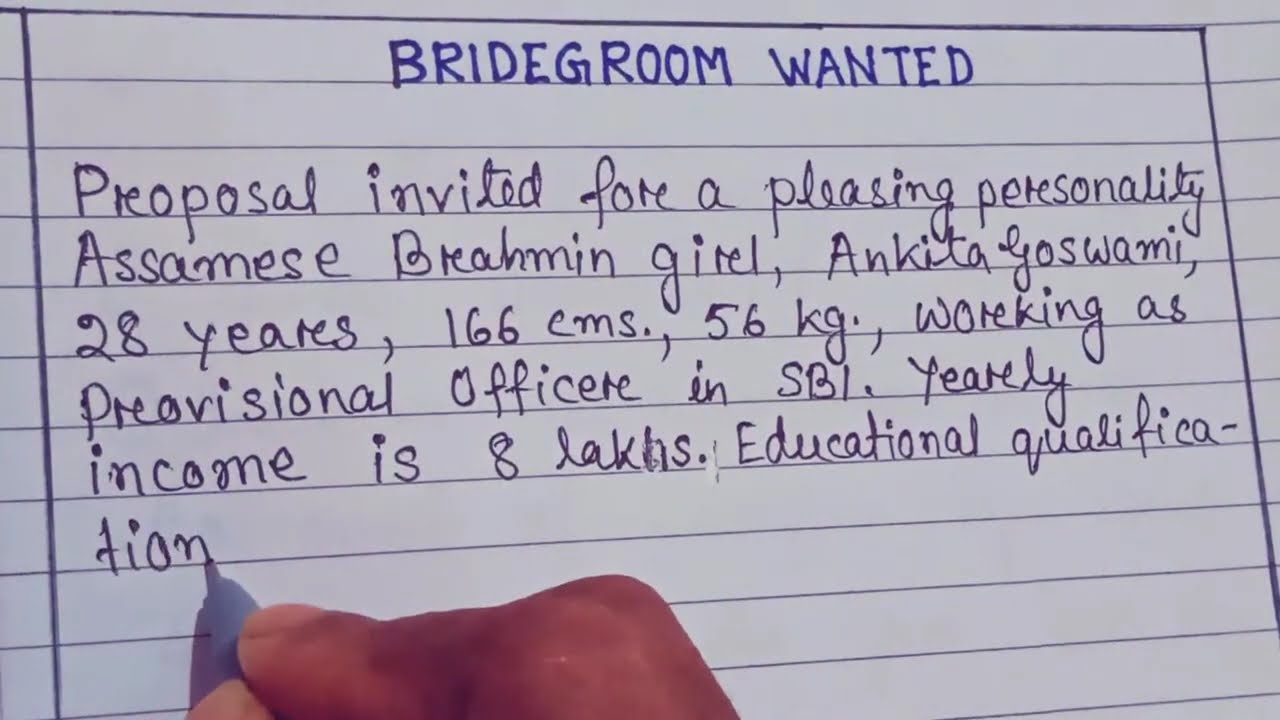 BRIDEGROOM WANTED
Proposal invited for a pleasing personality
Assamese Brahmin girl, Ankita Goswami,
28 years, 166 cms., 56 kg., working as
Provisional Officer in SBI. Yearly
income is 8 lakhs. Educational qualifica-
tion